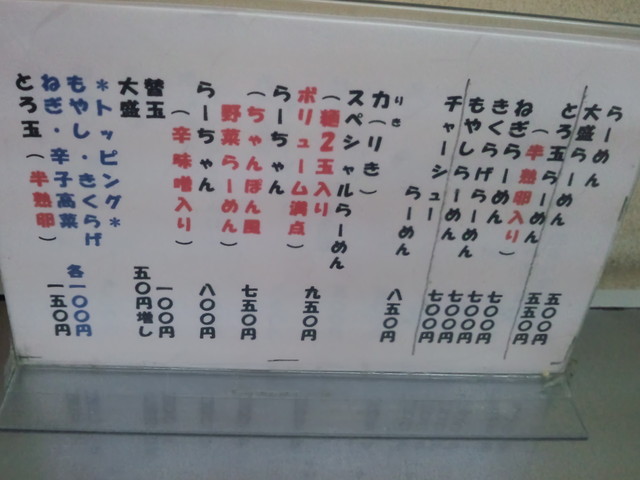 らーめん
大盛らーめん
とろ玉らーめん
(半熟卵入り)
ねぎらーめん
きくらげらーめん
もやしらーめん
チャーシュー
らーめん
五〇〇円
五五〇円
七〇〇円
七〇〇円
七〇〇円
七〇〇円
りき
力(りき)
らーめん
八五〇円
スペシャルらーめん
(麺2玉入り
ボリューム満点)
九五〇円
らーちゃん
(ちゃんぽん風
野菜らーめん)
七五〇円
らーちゃん
(辛味噌入り)
八〇〇円
替玉
一〇〇円
大盛
五〇円増し
*トッピング*
もやし・きくらげ
ねぎ・辛子高菜
各一〇〇円
とろ玉(半熟卵)
一五〇円